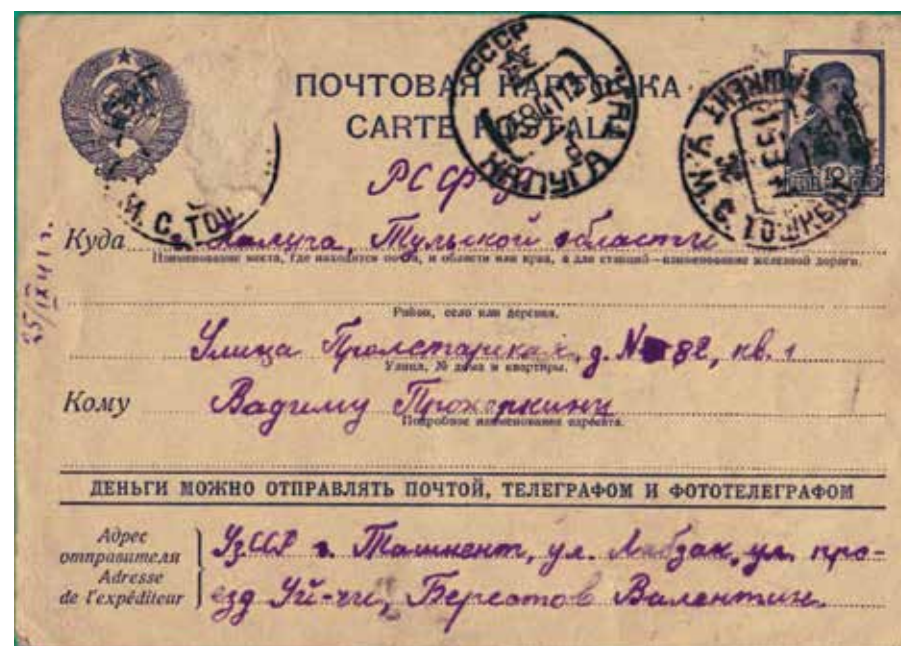 ПОЧТОВАЯ КАРТОЧКА
CARTE POSTALE
СССР
КАЛУГА
ТАШКЕНТ У.
И. С. ТОШ
РСФСР
Куда Калуга, Тульской области
Наименование места, где находится почта, и области или края, а для станций—наименование железной дороги.
25/IX 41 г.
Район, село или деревня.
Улица Пролетарская, д. № 82, кв. 1
Улица, № дома и квартиры.
Кому Вадиму Прохоркину
Подробное наименование адресата.
ДЕНЬГИ МОЖНО ОТПРАВЛЯТЬ ПОЧТОЙ, ТЕЛЕГРАФОМ И ФОТОТЕЛЕГРАФОМ
Адрес отправителя
Adresse de l'expéditeur
УзССР г. Ташкент, ул. Лабзак, ул. про-
езд Уй-чи, Берестов Валентин.